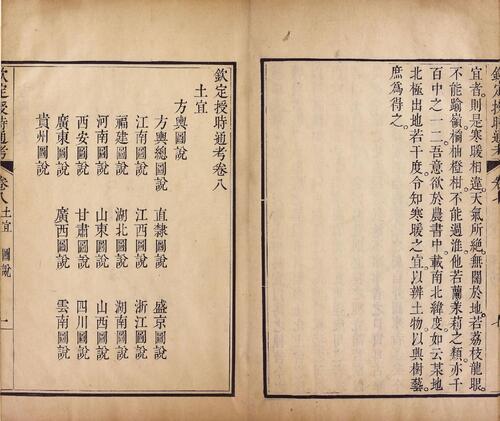 宜者。則是寒暖相違。天氣所絕。無關於地。若荔枝龍眼。
不能踰嶺。橘柚橙柑。不能過淮。他若蘭茉莉之類。亦千
百中之一二。吾意欲於農書中。載南北緯度。如云某地
北極出地若干度。令知寒暖之宜。以辨土物。以興樹藝
庶為得之。
欽定授時通考卷八
土宜
方輿圖說
方輿總圖說 直隸圖說 盛京圖說
江南圖說 江西圖說 浙江圖說
福建圖說 湖北圖說 湖南圖說
河南圖說 山東圖說 山西圖說
西安圖說 甘肅圖說 四川圖說
廣東圖說 廣西圖說 雲南圖說
貴州圖說
欽定授時通考 卷八 土宜 圖說 一